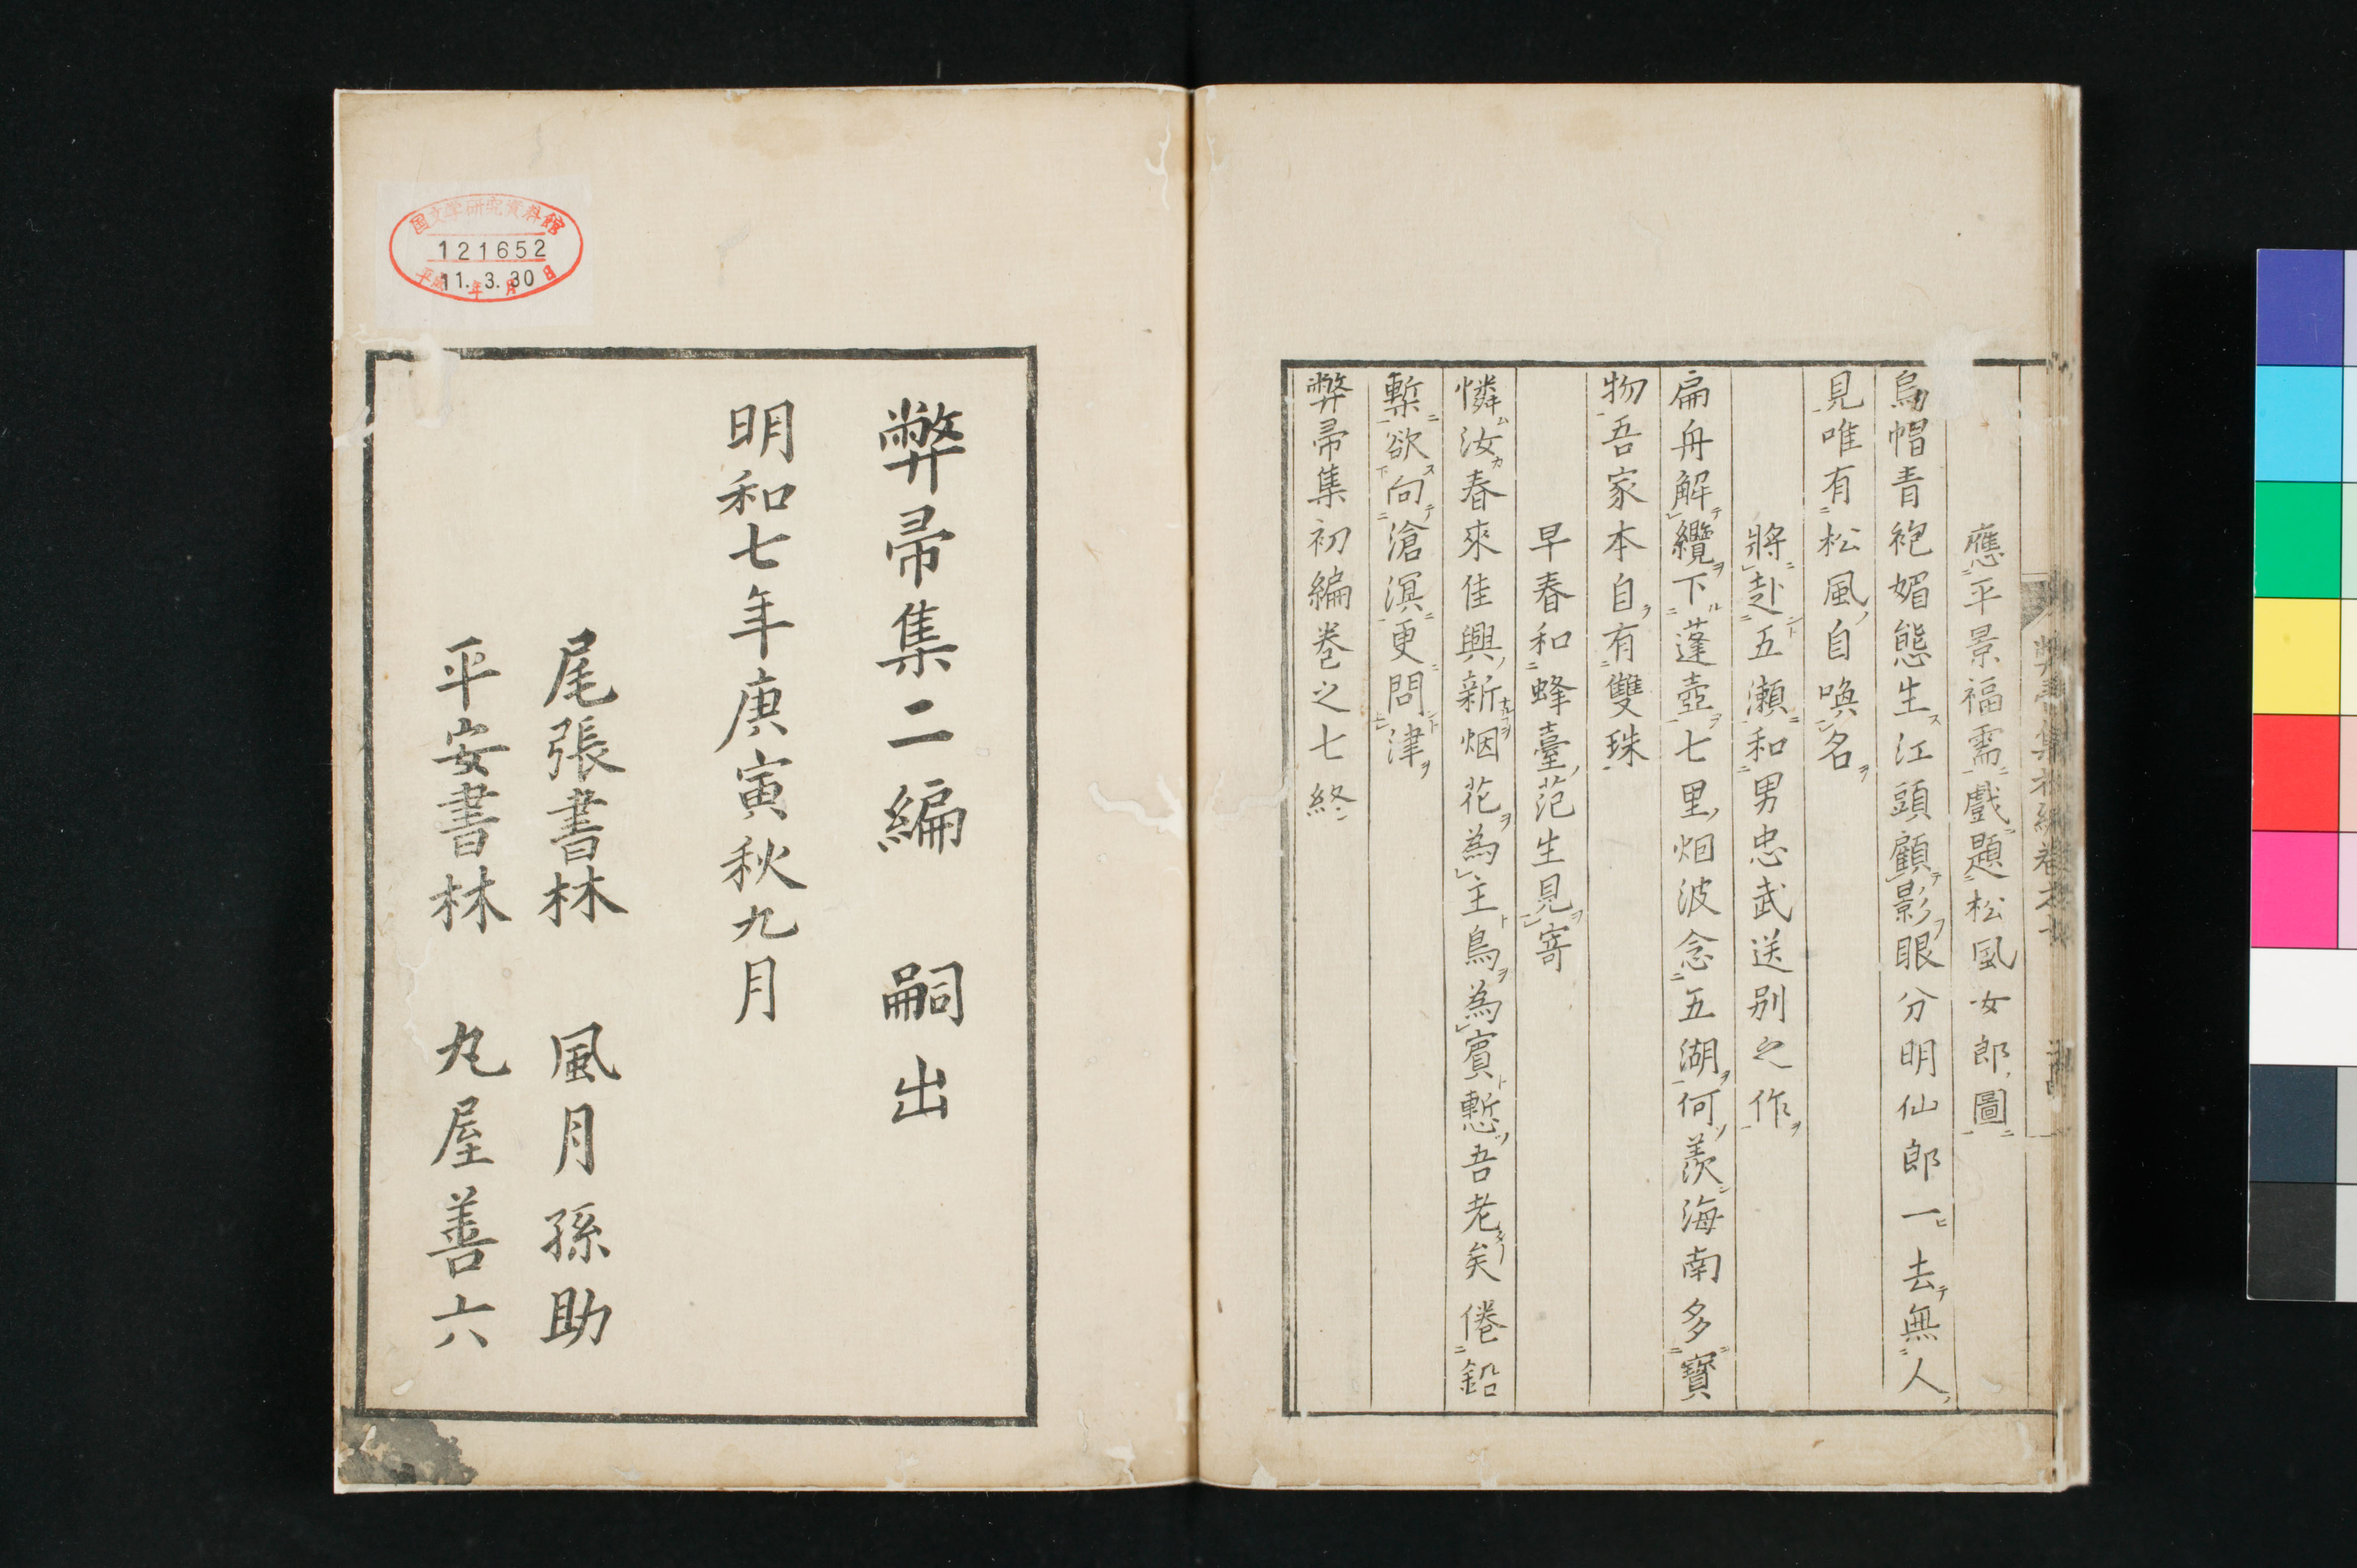 應平景福需戲題松風女郎圖
烏帽青袍媚態生江頭顧影眼分明仙郎一去無人
見唯有松風自喚名
將赴五瀨和男忠武送別之作
扁舟解纜下蓬壺七里烟波念五湖何羨海南多寶
物吾家本自有雙珠
早春和蜂臺范生見寄
憐汝春來佳興新烟花為主鳥為賓慙吾老矣倦鉛
槧欲向滄溟更問津
弊帚集初編巻之七終
弊帚集二編 嗣出
明和七年庚寅秋九月
尾張書林 風月孫助
平安書林 丸屋善六
国文学研究資料館
121652
平成11.年3.月30日